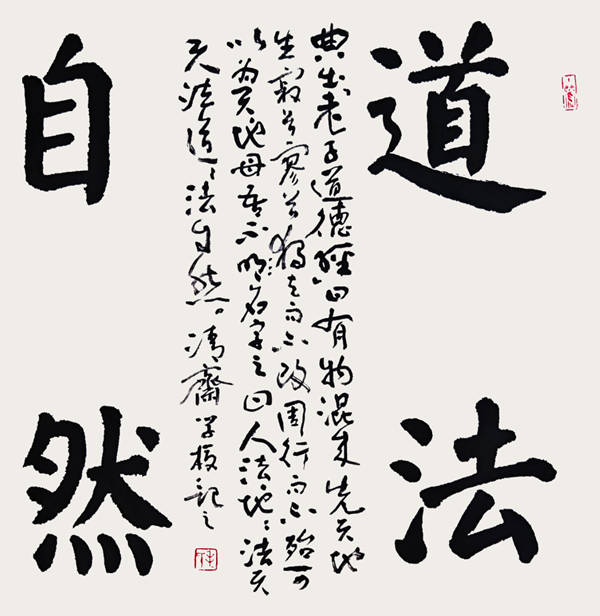 道法
典出老子道德經曰有物混成先天地
生寂兮寥兮獨立而不改周行而不殆可
以為天地母吾不明名字之曰人法地々法天
天法道々法自然。清齋記之
自然